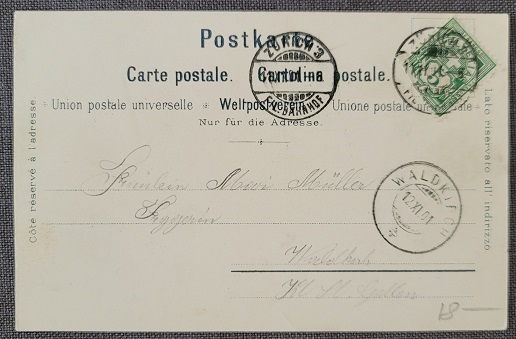 Postkarte
Carte postale. Cartolina postale.
Union postale universelle. Weltpostverein. Unione postale universale.
Nur für die Adresse.
Côte réservé à l'adresse.
Lato riservato all' indirizzo
ZÜRICH 3
XI.01
FIL. BAHNHOF
WALDKIRCH
12.XI.01
Fräulein Müller
Waldkirch
Kt. St. Gallen